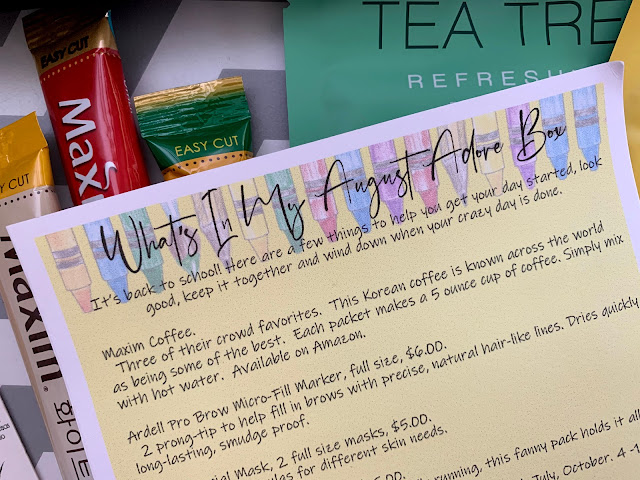 EASY CUT
Maxim
EASY CUT
CUT
Maxim
화이트
TEA TRE
REFRESH
What's In My August Adore Box
It's back to school! Here are a few things to help you get your day started, look
good, keep it together and wind down when your crazy day is done.
Maxim Coffee.
Three of their crowd favorites. This Korean coffee is known across the world
as being some of the best. Each packet makes a 5 ounce cup of coffee. Simply mix
with hot water. Available on Amazon.
Ardell Pro Brow Micro-Fill Marker, full size, $6.00.
2 prong-tip to help fill in brows with precise, natural hair-like lines. Dries quickly
long-lasting, smudge proof.
Mask, 2 full size masks, $5.00.
for different skin needs.
5.00.
running, this fanny pack holds it all
July, October. 4 -1